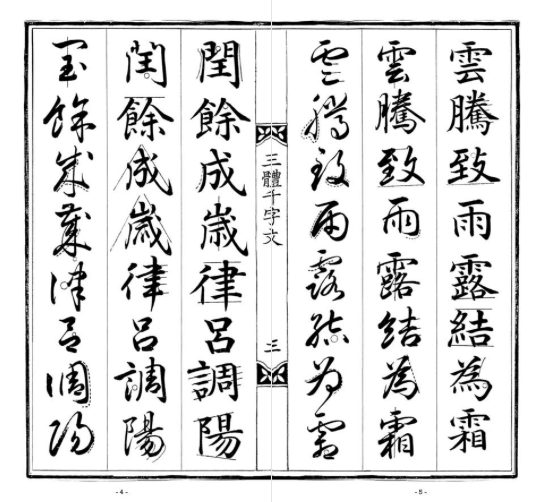 雲騰致雨露結為霜
雲騰致雨露結為霜
雲騰致雨露結為霜
三體千字文 三
閏餘成歲律呂調陽
閏餘成歲律呂調陽
閏餘成歲律呂調陽
- 4 -
- 5 -